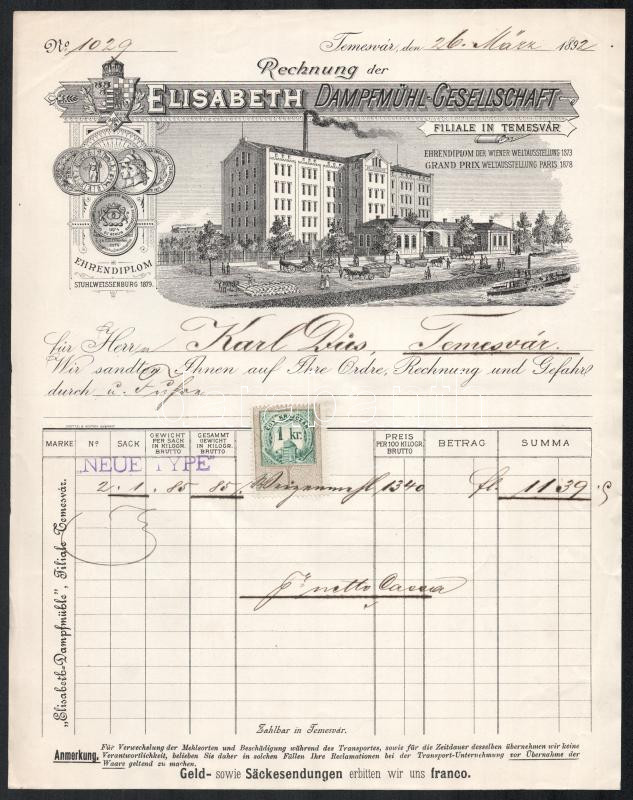 No. 1029
Temesvár, den 26. März 1892
Rechnung der
ELISABETH DAMPFMÜHL-GESELLSCHAFT
FILIALE IN TEMESVÁR
EHRENDIPLOM DER WIENER WELTAUSSTELLUNG 1873
GRAND PRIX WELTAUSSTELLUNG PARIS 1878
EHRENDIPLOM
STUHLWEISSENBURG 1879.
für Herrn Karl Dies, Temesvár.
Wir sandten Ihnen auf Ihre Ordre, Rechnung und Gefahr
durch u. Fuhre
1 kr.
MARKE No SACK GEWICHT PER SACK IN KILOGR. BRUTTO GESAMMT GEWICHT IN KILOGR. BRUTTO PREIS PER 100 KILOGR. BRUTTO BETRAG SUMMA
"NEUE TYPE"
2. 1. 85 85 Weizenmehl 1340 fl. 11 39
pr netto Cassa
"Elisabeth-Dampfmühle", Filiale Temesvár.
Zahlbar in Temesvár.
Anmerkung. Für Verwechslung der Mehlsorten und Beschädigung während des Transportes, sowie für die Zeitdauer desselben übernehmen wir keine
Verantwortlichkeit, belieben Sie daher in solchen Fällen Ihre Reclamationen bei der Transport-Unternehmung vor Übernahme der
Waare geltend zu machen.
Geld- sowie Säckesendungen erbitten wir uns franco.